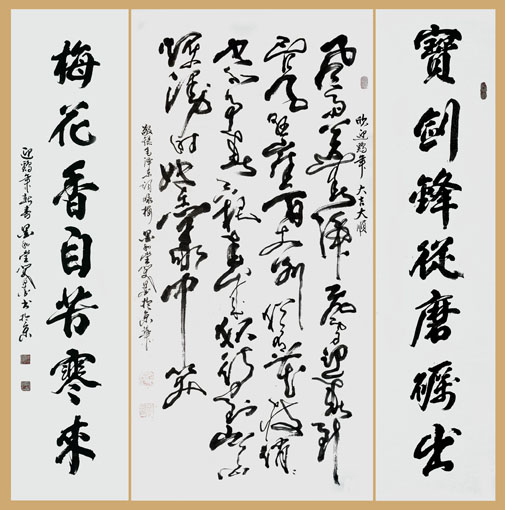 寶劍鋒從磨礪出
欣迎鷄年 大吉大順
風雨送春歸飛雪迎春到
已是懸崖百丈冰猶有花枝俏俏
也不爭春只把春來報待到山花
爛漫時她在叢中笑
敬録毛澤東詞咏梅
梅花香自苦寒來
迎鷄年新春